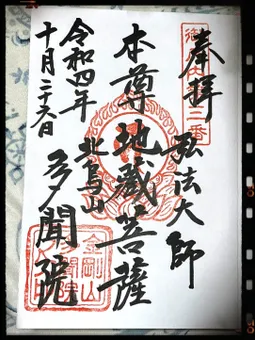 奉拝
弘法大師
本尊地蔵菩薩
北烏山
多聞院
令和四年
十月二十六日
金剛山